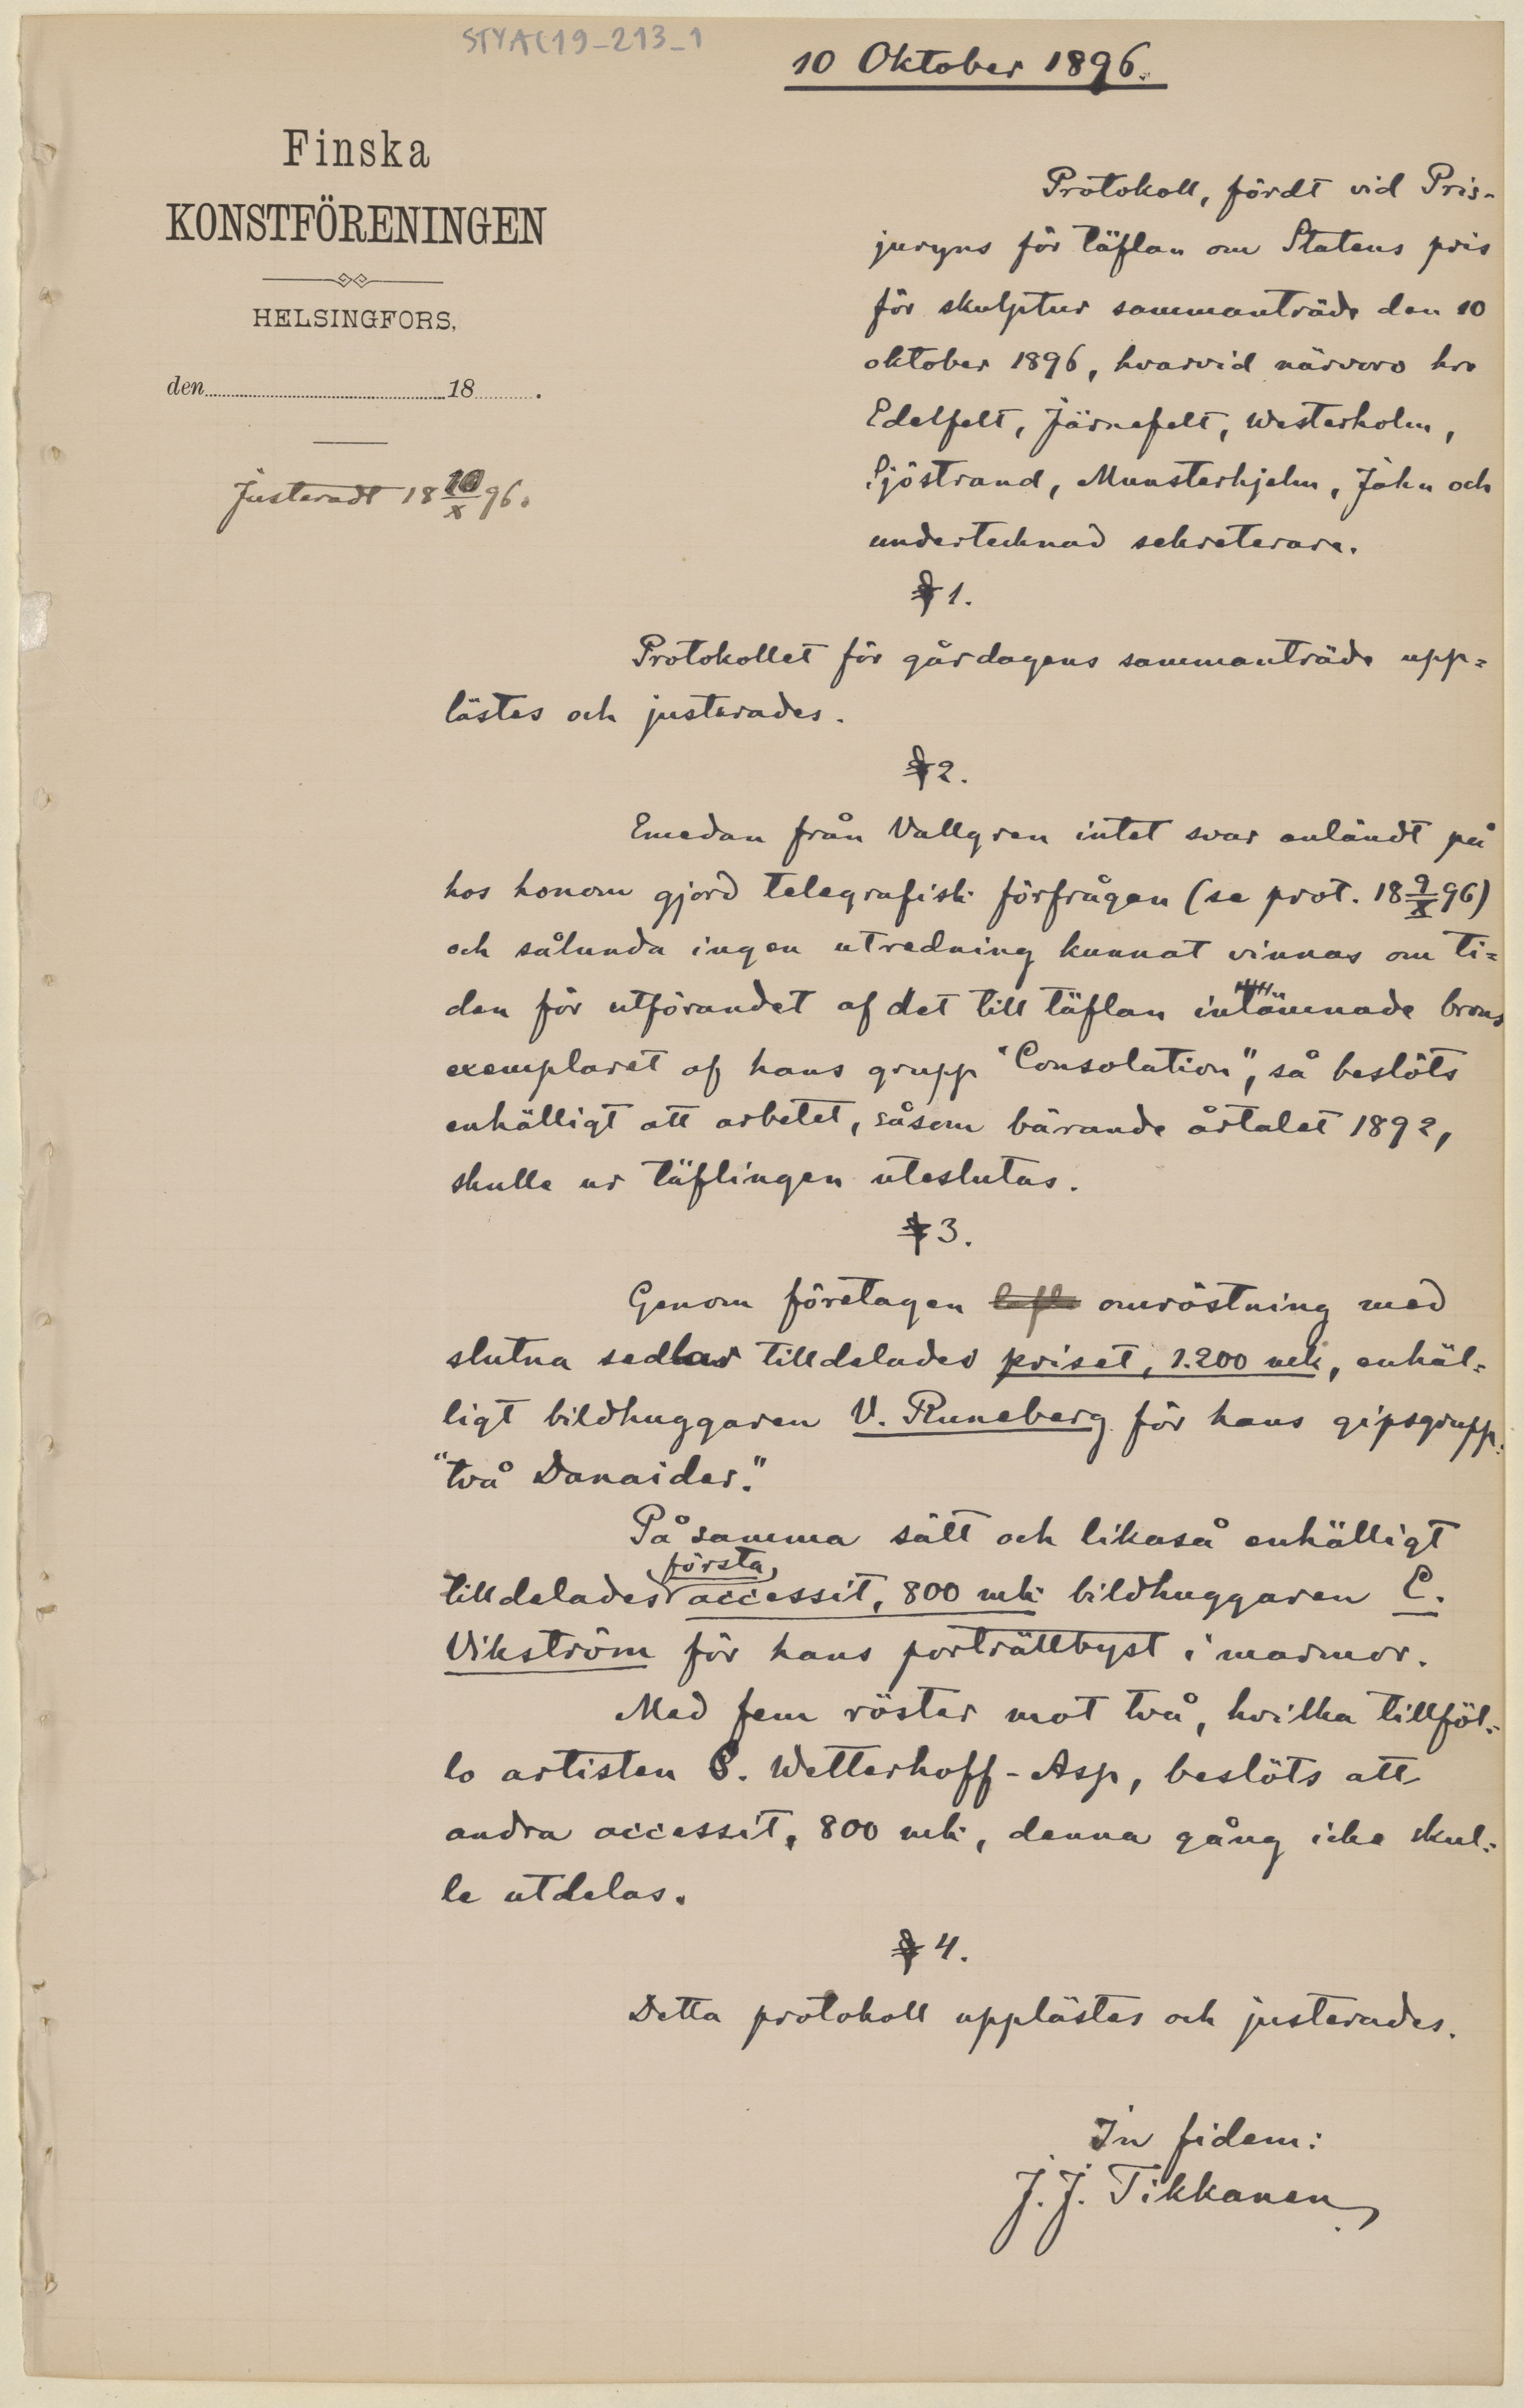 STYAC19-213-1
10 Oktober 1896.
Finska
KONSTFÖRENINGEN
HELSINGFORS,
den 18 .
Justeradt 18 10/X 96.
Protokoll, fördt vid Pris-
juryns för täflan om Statens pris
för skulptur sammanträde den 10
oktober 1896, hvarvid närvoro hrr
Edelfelt, Järnefelt, Westerholm,
Sjöstrand, Munsterhjelm, Jahn och
undertecknad sekreterare.
§ 1.
Protokollet för gårdagens sammanträde upp=
lästes och justerades.
§ 2.
Emedan från Vallgren intet svar anländt på
hos honom gjord telegrafisk förfrågan (se prot. 18 9/X 96)
och sålunda ingen utredning kunnat vinnas om ti=
den för utförandet af det till täflan inlämnade brons
exemplaret af hans grupp "Consolation", så beslöts
enhälligt att arbetet, såsom bärande årtalet 1892,
skulle ur täflingen uteslutas.
§ 3.
Genom företagen omröstning med
slutna sedlar tilldelades priset, 1.200 mk, enhäl=
ligt bildhuggaren V. Runeberg för hans gipsgrupp
"två Danaider."
På samma sätt och likaså enhälligt
första
tilldelades accessit, 800 mk bildhuggaren E.
Vikström för hans porträttbyst i marmor.
Med fem röster mot två, hvilka tillföl=
lo artisten S. Wetterhoff-Asp, beslöts att
andra accessit, 800 mk, denna gång icke skul=
le utdelas.
§ 4.
Detta protokoll upplästes och justerades.
In fidem:
J. J. Tikkanen